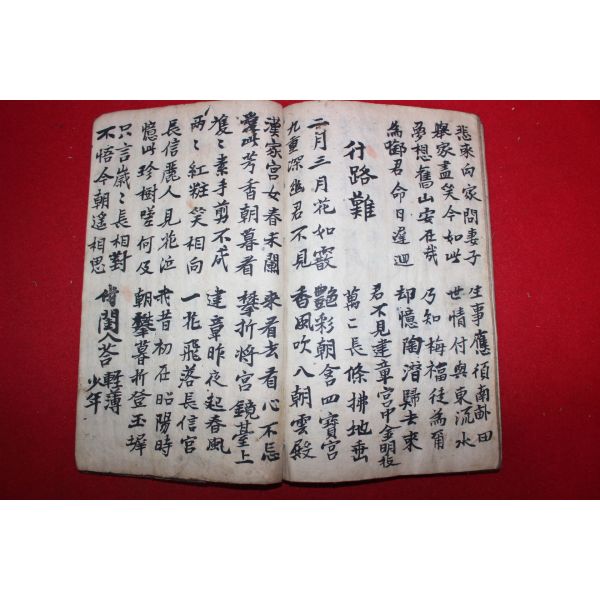 悲來向家問妻子
舉家盡笑今如此
生事應須南畝田
世情付與東流水
夢想舊山安在哉
為啣君命日遲迴
乃知梅福徒為爾
却憶陶潛歸去來
行路難
君不見建章宮中金明枝
萬〻長條拂地垂
二月三月花如霰
九重深幽君不見
艷彩朝含四寶宮
香風吹入朝雲殿
漢家宮女春未闌
愛此芳香朝暮看
來看去看心不忘
攀折將宮鏡臺上
雙〻素手剪不成
兩〻紅粧笑相向
建章昨夜起春風
一花飛落長信宮
長信麗人見花泣
憶此珍樹嗟何及
我昔初在昭陽時
朝攀暮折登玉墀
只言歲〻長相對
不悟今朝遙相思
閨人答輕薄少年